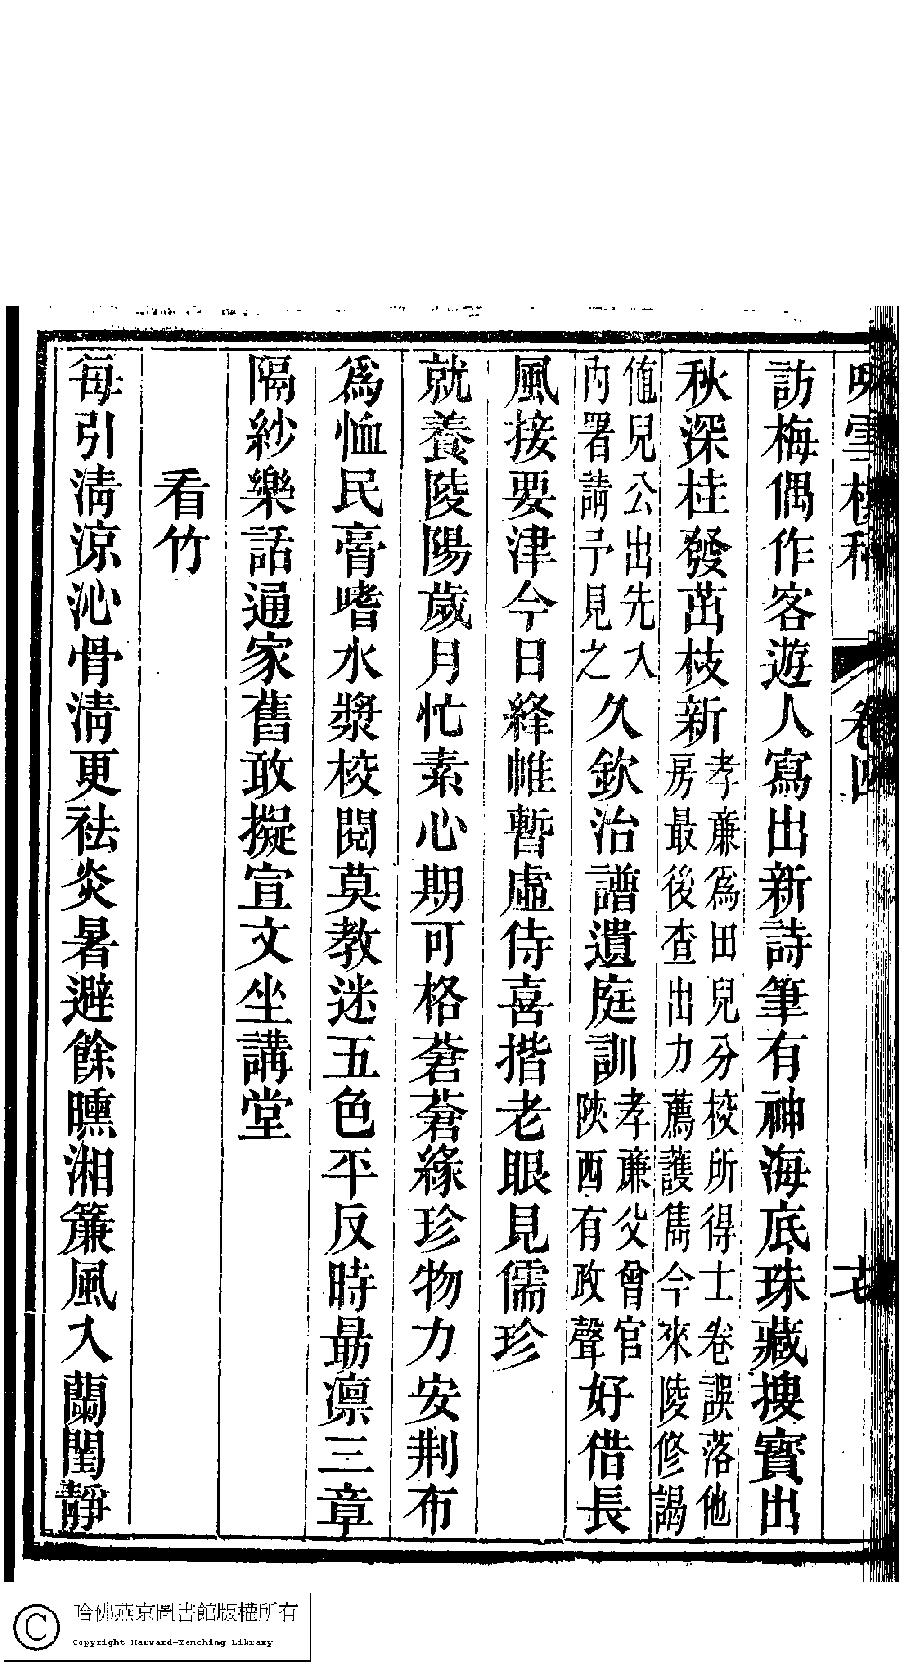 咏雪樓稿 卷四
訪梅偶作客遊人寫出新詩筆有神海底珠藏搜寶出
秋深桂發茁枝新孝廉為田兒分校所得士卷誤落他房最後查出力薦護雋今來陵修謁
值兒公出先入內署請予見之久欽治譜遺庭訓孝廉父曾官陝西有政聲好借長
風接要津今日絳帷暫虛侍喜揩老眼見儒珍
就養陵陽歲月忙素心期可格蒼蒼緣珍物力安荆布
為恤民膏嗜水漿校閱莫教迷五色平反時最凛三章
隔紗樂話通家舊敢擬宣文坐講堂
看竹
每引清涼沁骨清更祛炎暑避餘曛湘簾風入蘭閨靜
哈佛燕京圖書館版權所有
Copyright Harvard-Yenching Library